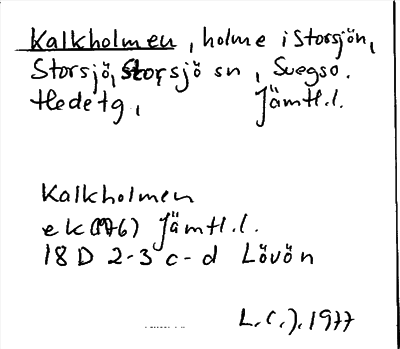 Kalkholmen, holme i Storsjön,
Storsjö, Storsjö sn, Svegso.
Hedetg, Jämtl.l.
Kalkholmen
ek (1976) Jämtl.l.
18 D 2-3 c-d Lövön
L.C.J. 1977